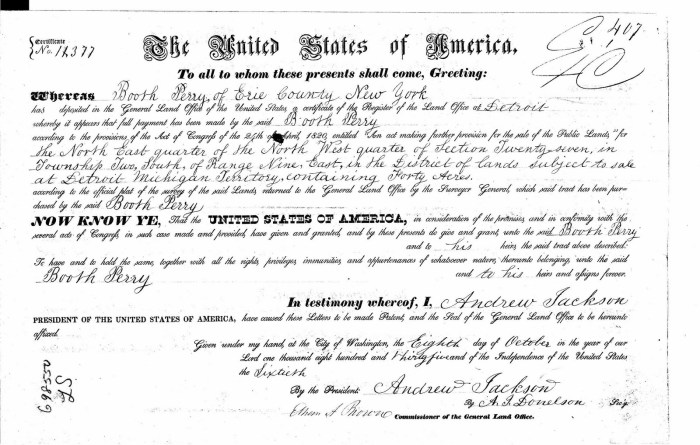 407
Certificate
No. 12377
The United States of America,
To all to whom these presents shall come, Greeting:
Whereas Booth Perry, of Erie County New York
has deposited in the General Land Office of the United States, a certificate of the Register of the Land Office at Detroit
whereby it appears that full payment has been made by the said Booth Perry
according to the provisions of the Act of Congress of the 24th of April, 1820, entitled "An act making further provision for the sale of the Public Lands," for
the North East quarter of the North West quarter of Section Twenty seven, in
Township Two, South, of Range Nine, East, in the District of lands subject to sale
at Detroit Michigan Territory, containing Forty Acres.
according to the official plat of the survey of the said Lands, returned to the General Land Office by the Surveyor General, which said tract has been pur-
chased by the said Booth Perry
NOW KNOW YE, That the UNITED STATES OF AMERICA, in consideration of the premises, and in conformity with the
several acts of Congress, in such case made and provided, have given and granted, and by these presents do give and grant, unto the said Booth Perry
and to his heirs, the said tract above described:
To have and to hold the same, together with all the rights, privileges, immunities, and appurtenances of whatsoever nature, thereunto belonging, unto the said
Booth Perry and to his heirs and assigns forever.
In testimony whereof, I, Andrew Jackson
PRESIDENT OF THE UNITED STATES OF AMERICA, have caused these Letters to be made Patent, and the Seal of the General Land Office to be hereunto
affixed.
Given under my hand, at the City of Washington, the Eighth day of October in the year of our
Lord one thousand eight hundred and thirty five and of the Independence of the United States
the Sixtieth
By the President: Andrew Jackson
By A. J. Donelson Sec'y.
Commissioner of the General Land Office.
698550